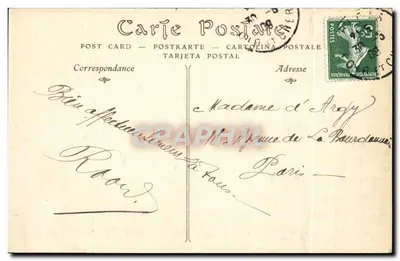 Carte Postale
POST CARD — POSTKARTE — CARTOLINA POSTALE
TARJETA POSTAL
Correspondance
Adresse
Bien affectueusement à tous
Madame d'Argy
Avenue de La Bourdonnais
Paris
POSTES
5
CHER
09